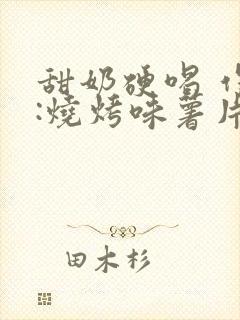 甜奶硬唱
:燒烤味薯片
田木杉